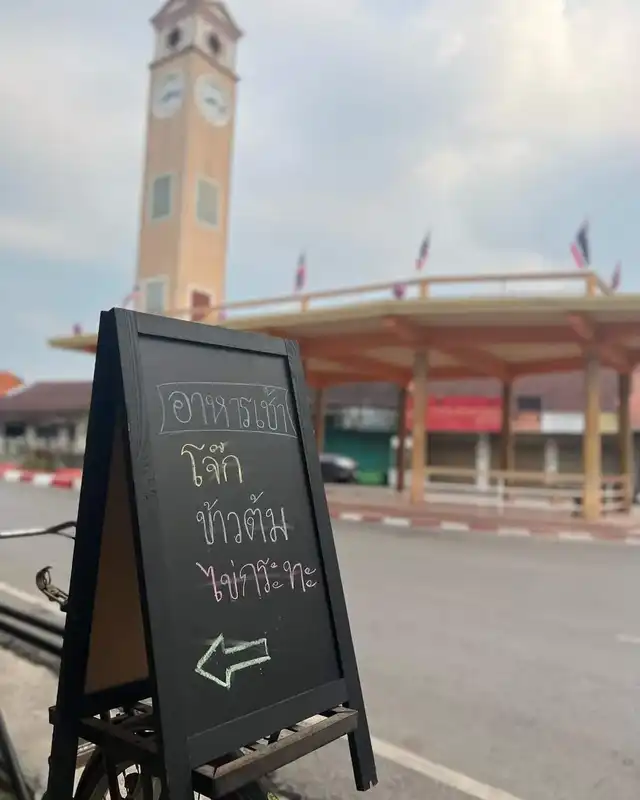 อาหารเช้า
โจ๊ก
ข้าวต้ม
ไข่กระทะ